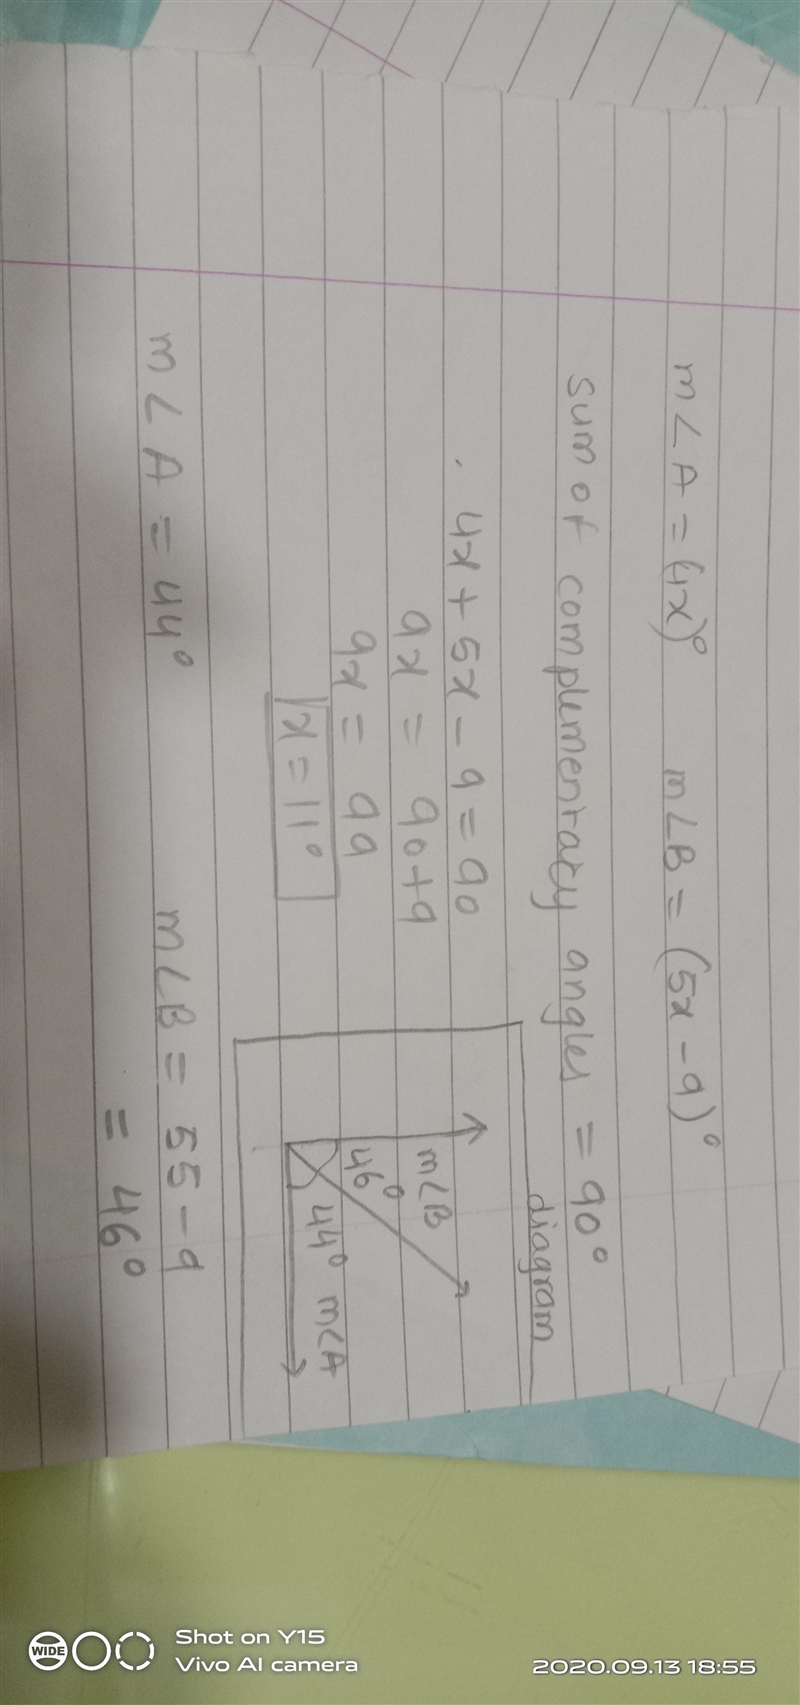 m∠A = (4x)° m∠B = (5x - 9)°
sum of complementary angles = 90°
4x + 5x - 9 = 90
9x = 90 + 9
9x = 99
x = 11°
diagram
m∠B
46°
44° m∠A
m∠A = 44° m∠B = 55 - 9
= 46°
WIDE
Shot on Y15
Vivo AI camera
2020.09.13 18:55